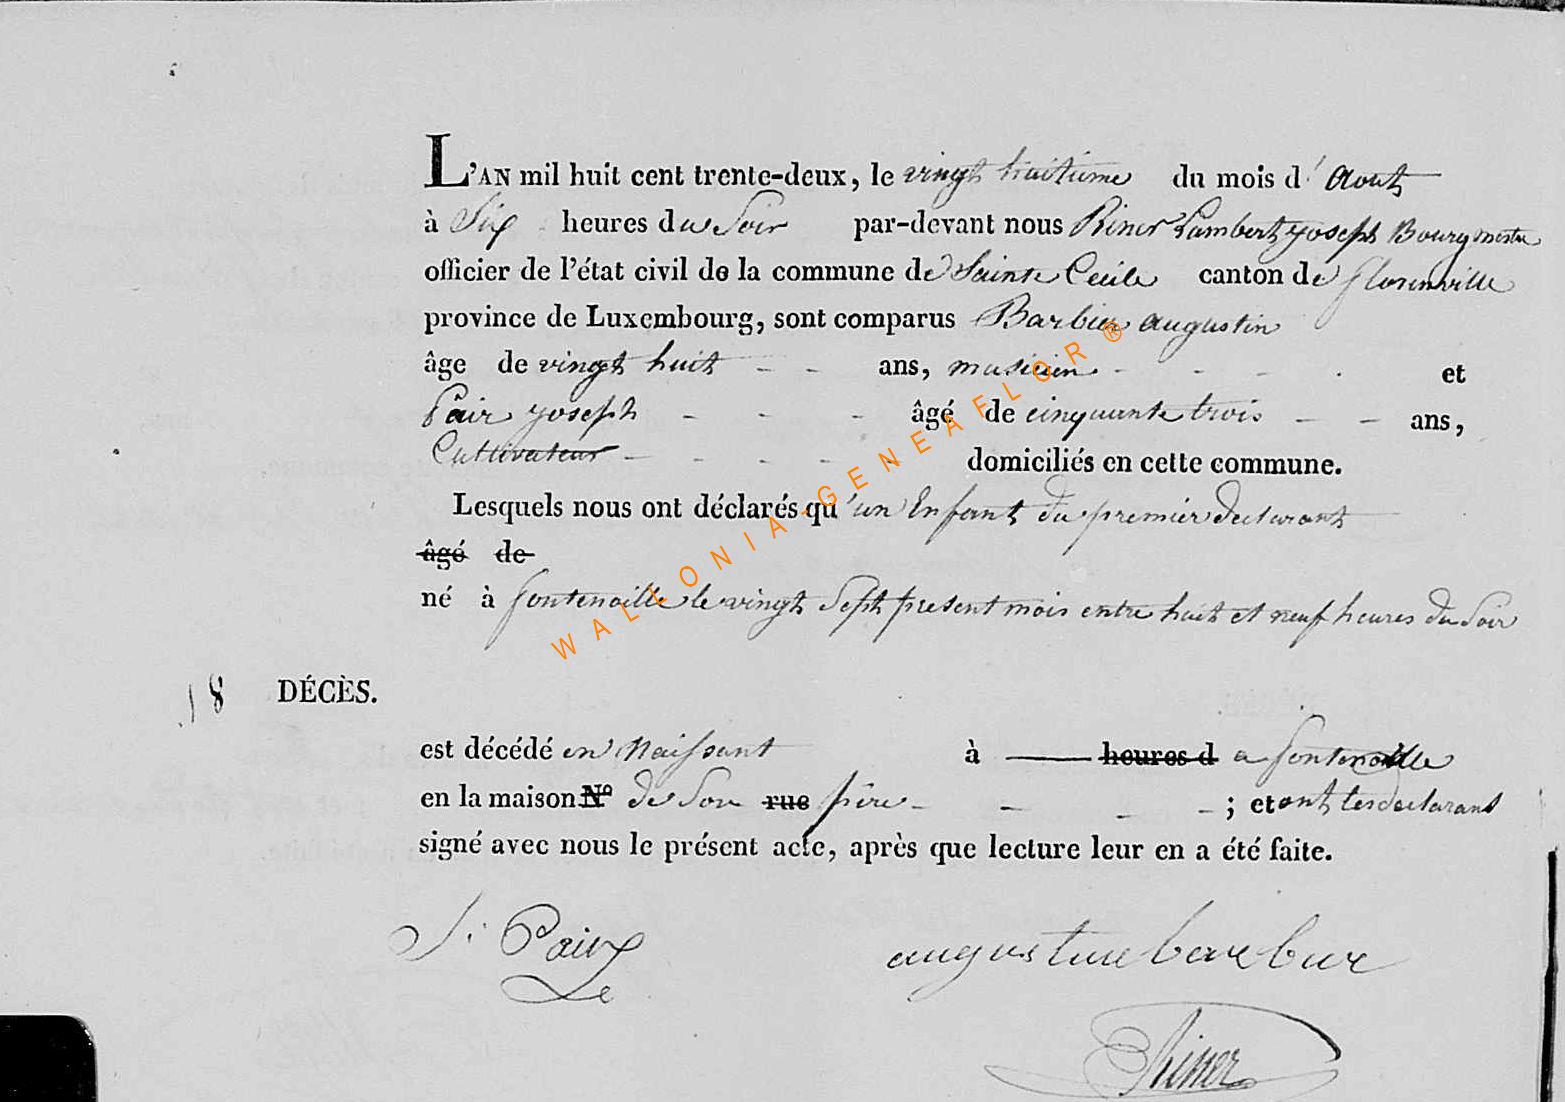 L'AN mil huit cent trente-deux, le vingt huitieme du mois d' Aout
à Six heures du Soir par-devant nous Riner Lambert Joseph Bourgmestre
officier de l'état civil de la commune de Sainte Cecile canton de florenville
province de Luxembourg, sont comparus Barbier augustin
âge de vingt huit - - ans, musicien - - - . et
Pair Joseph - - - âgé de cinquante trois - - ans,
Cultivateur - - - - - domiciliés en cette commune.
Lesquels nous ont déclarés qu'un Enfant du premier declarant
âgé de
né à fontenoille le vingt Sept present mois entre huit et neuf heures du Soir
18 DÉCÈS.
est décédé en Naissant à heures d a fontenoille
en la maison Nº de Son rue père - - - - ; et ont les declarant
signé avec nous le présent acte, après que lecture leur en a été faite.
J. Pair augustin
Riner
WALLONIA-GENEAFLOR®